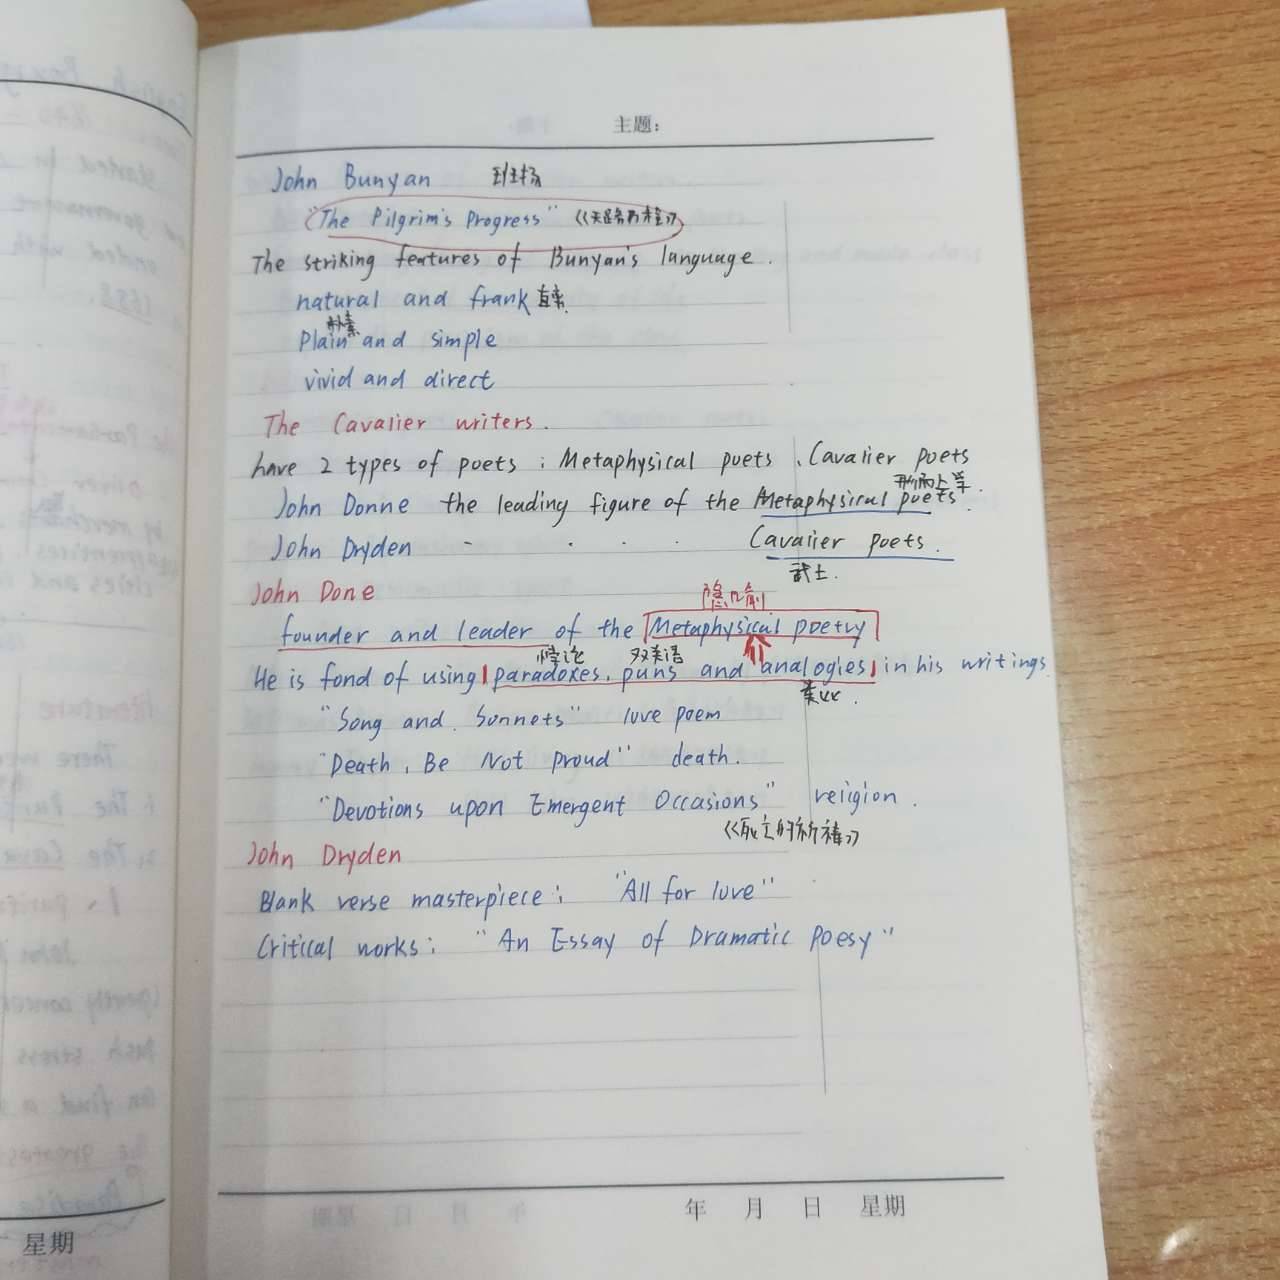 主题：
John Bunyan 班扬
"The Pilgrim's Progress" 《天路历程》
The striking features of Bunyan's language.
natural and frank 直率.
朴素
Plain and simple
vivid and direct
The Cavalier writers.
have 2 types of poets : Metaphysical poets 、Cavalier poets
形而上学.
John Donne the leading figure of the Metaphysical poets.
John Dryden - · · · Cavalier poets.
武士.
John Done
隐喻
founder and leader of the Metaphysical poetry
悖论 双关语
He is fond of using paradoxes, puns and analogies in his writings.
类比.
"Song and Sonnets" love poem
"Death, Be Not Proud" death.
"Devotions upon Emergent Occasions" religion.
John Dryden
Blank verse masterpiece: "All for love"
Critical works: "An Essay of Dramatic Poesy"
年 月 日 星期
星期